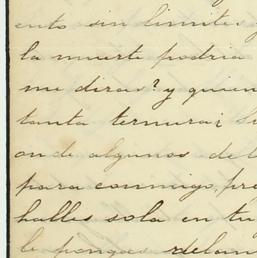 ento sin limites y
la muerte podria
me diras? y quien
tanta ternura¿ Si
on de algunos de l
para conmigo, pre
halles sola en tu
le pongas delan